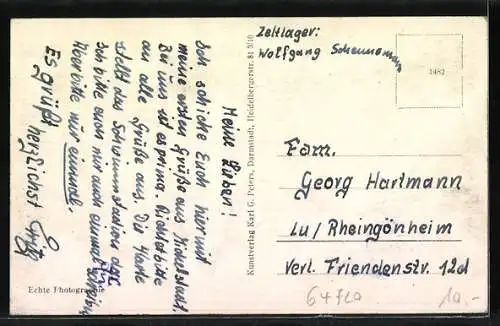 Meine Lieben!
Ich schicke Euch hiermit
meine ersten Grüße aus
Bei uns ist es prima. Richtet bitte
an alle Grüße aus. Die Karte
stellt das Schwimmstadion dar.
Ich bitte euch mir auch einmal
Aber bitte nur einmal.
Es grüßt herzlichst Fritz
Echte Photographie
Kunstverlag Karl G. Peters, Darmstadt, Heidelbergerstr. 81 5/10
Zeltlager:
Wolfgang
1482
Fam.
Georg Hartmann
Lu/Rheingönheim
Verl. Friedenstr. 12d
10.-